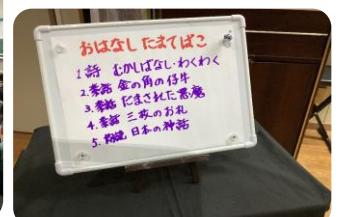 おはなし たまてばこ
1 詩 むかしばなし・わくわく
2. 素話 金の角の仔牛
3. 素話 だまされた悪魔
4. 素話 三枚のお札
5. 日本の神話